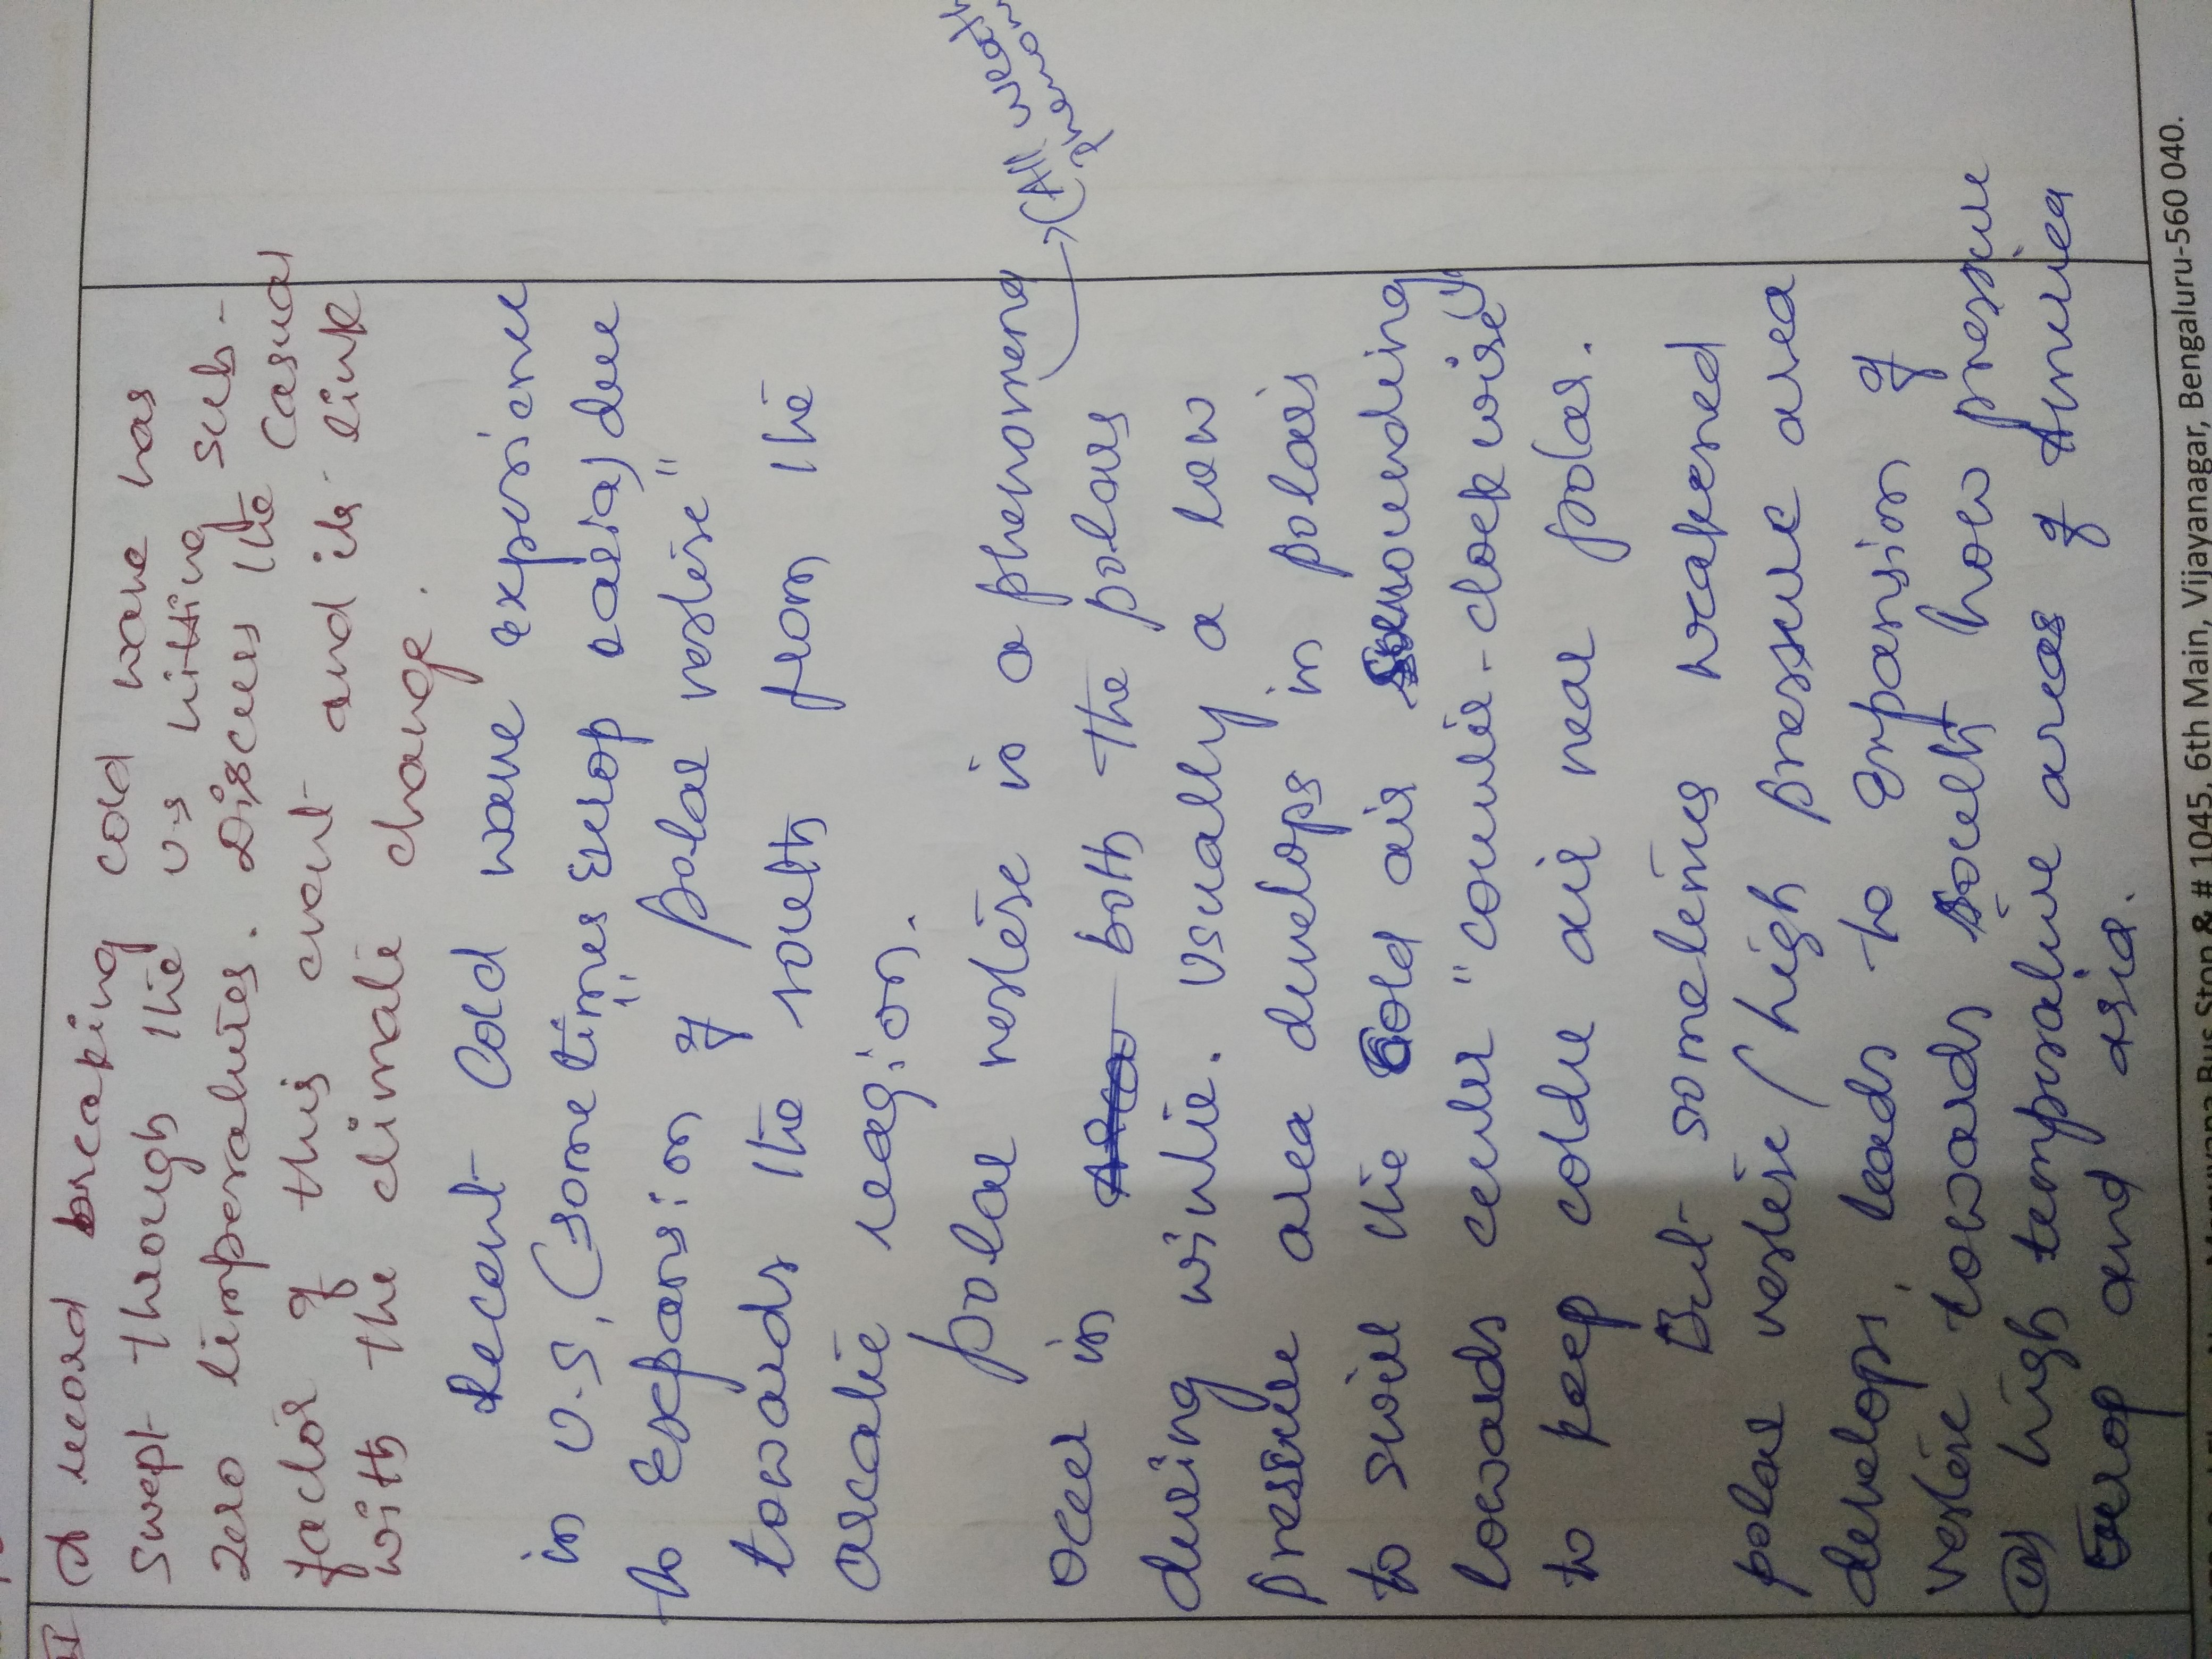 A record breaking cold wave has
swept through the U.S hitting sub-
zero temperatures. Discuss the Casual
factor of this event and its link
with the climate change.
Recent cold wave experience
in U.S, (sometimes Europ & asia) due
to Expansion of "polar vortex"
towards the south from the
arcatic reagion.
polar vortex is a phenomena → (All weath
occur in both the polars
during winter. Usually a low
pressure area develops in polars
to swirl the Cold air surrounding
towards center "counter-clock wisely"
to keep colder air near polar.
But sometimes weakened
polar vortex / high pressure area
develops, leads to Expansion of
vortex towards south low pressure
or high temperature areas of America
Europ and asia.
Bus Stop & # 1045, 6th Main, Vijayanagar, Bengaluru-560 040.